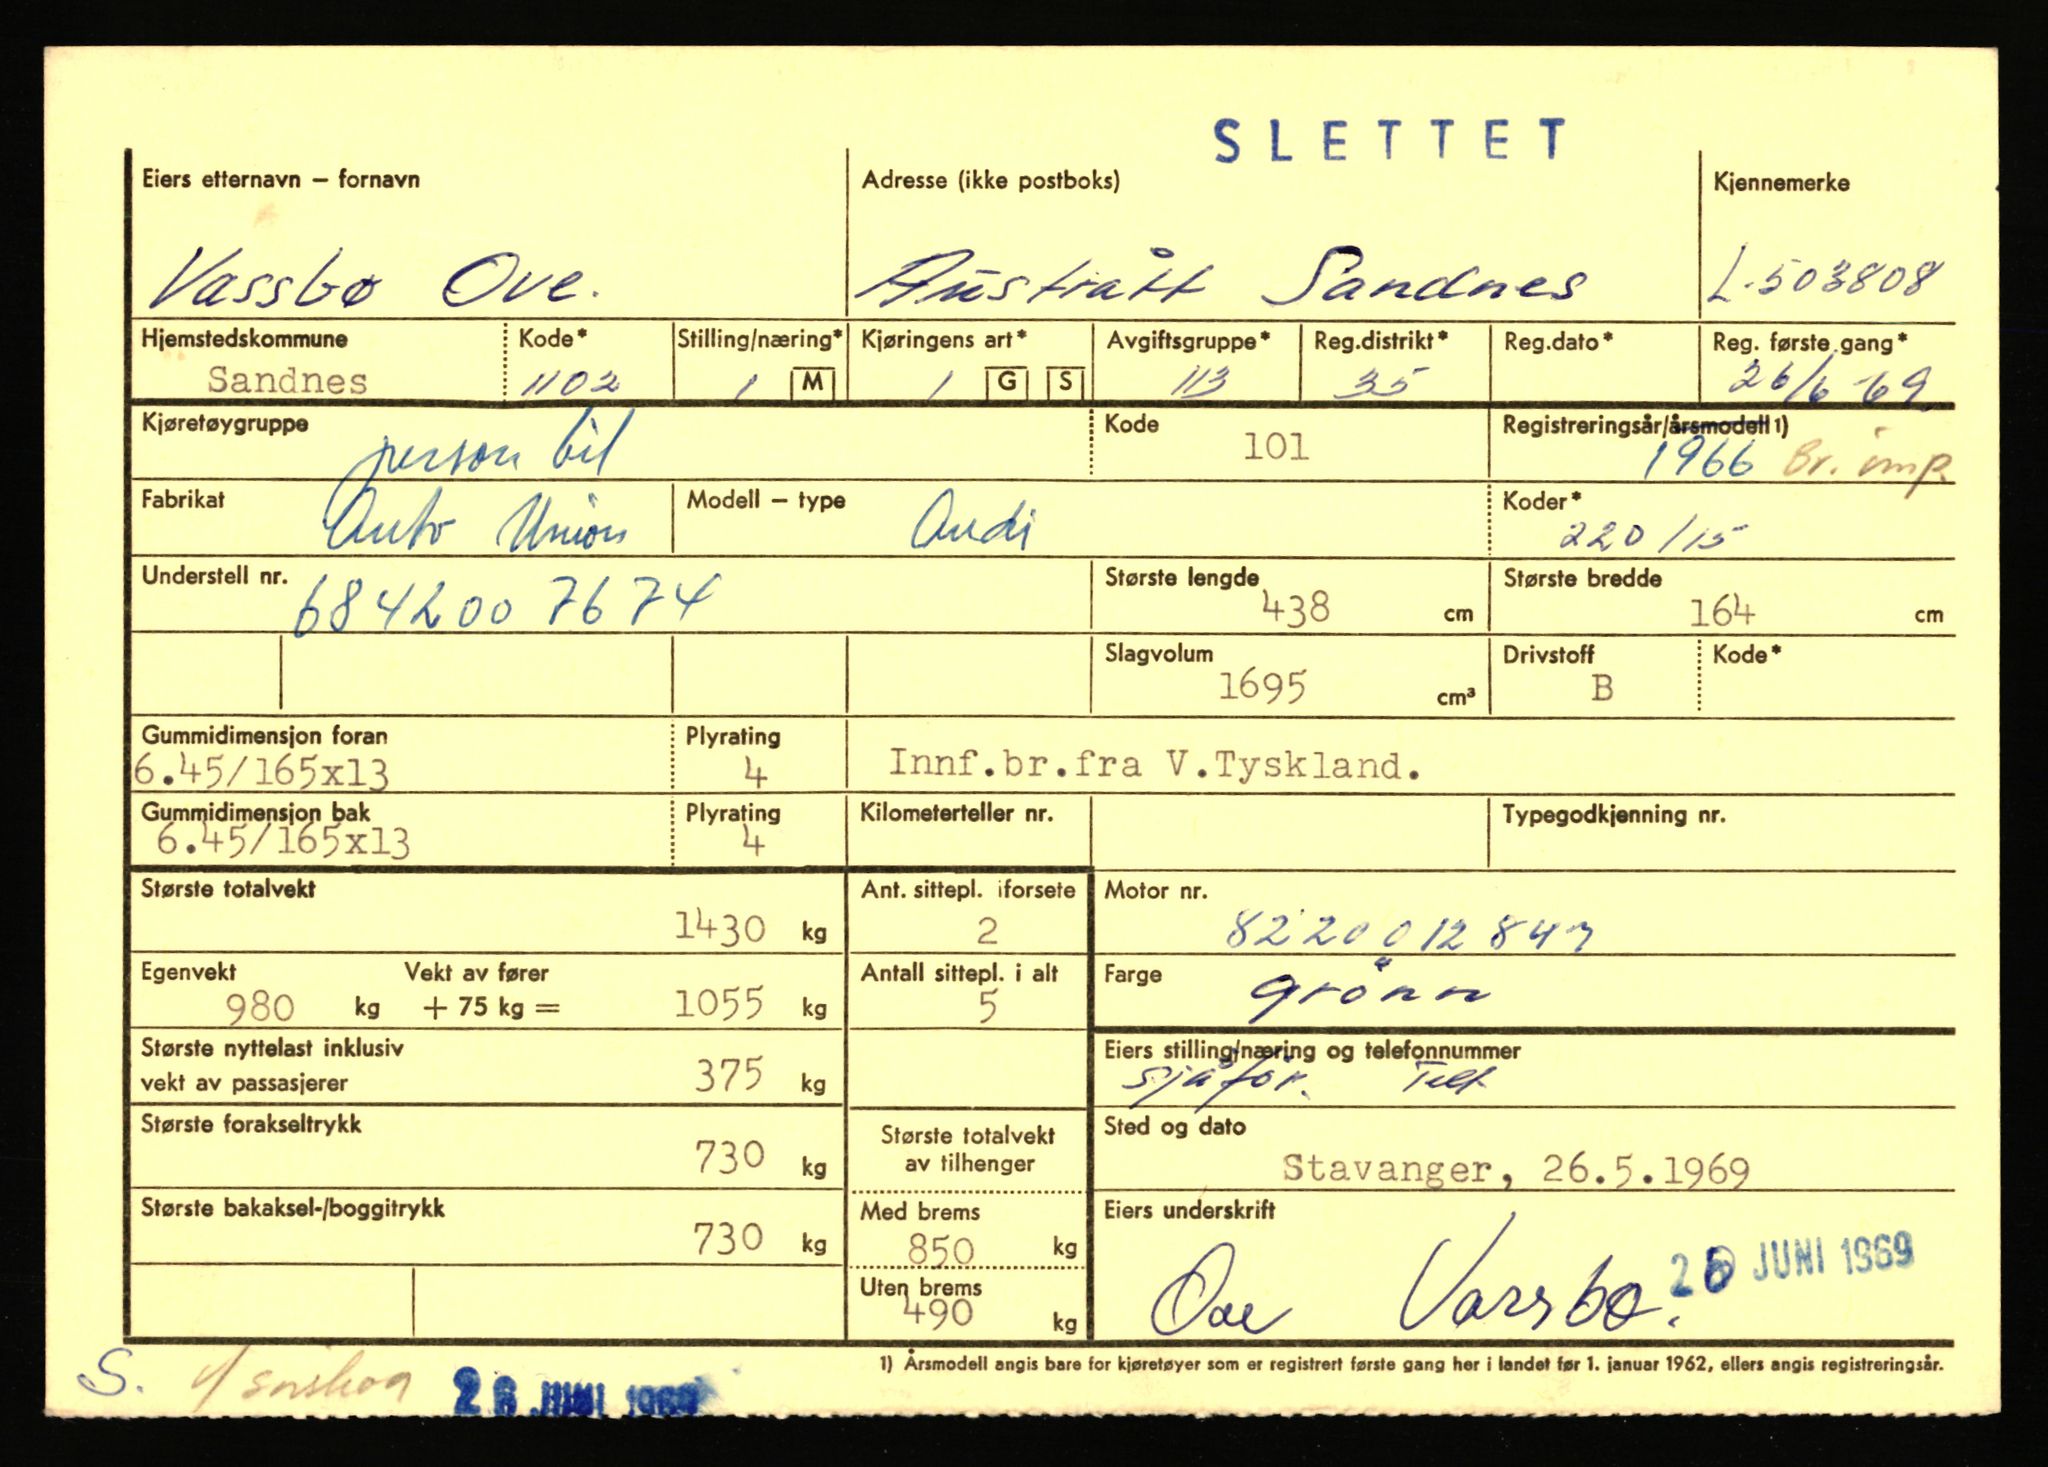 SLETTET
Eiers etternavn – fornavn
Adresse (ikke postboks)
Kjennemerke
Vassbø Ove.
Austrått Sandnes
L-503808
Hjemstedskommune
Kode*
Stilling/næring*
Kjøringens art*
Avgiftsgruppe*
Reg.distrikt*
Reg.dato*
Reg. første gang*
Sandnes
1102
1 M
1 G S
113
35
26/6-69
Kjøretøygruppe
Kode
Registreringsår/årsmodell 1)
person bil
101
1966 Br. imp
Fabrikat
Modell – type
Koder*
Auto Union
Audi
220/15
Understell nr.
Største lengde
Største bredde
6842007674
438 cm
164 cm
Slagvolum
Drivstoff
Kode*
1695 cm³
B
Gummidimensjon foran
Plyrating
6.45/165x13
4
Innf.br.fra V.Tyskland.
Gummidimensjon bak
Plyrating
Kilometerteller nr.
Typegodkjenning nr.
6.45/165x13
4
Største totalvekt
Ant. sittepl. i forsete
Motor nr.
1430 kg
2
822001284
Egenvekt
Vekt av fører
Antall sittepl. i alt
Farge
980 kg + 75 kg = 1055 kg
5
grønn
Største nyttelast inklusiv
vekt av passasjerer
375 kg
Eiers stilling/næring og telefonnummer
sjåfør. Telf
Største forakseltrykk
730 kg
Største totalvekt
av tilhenger
Sted og dato
Stavanger, 26.5.1969
Største bakaksel-/boggitrykk
730 kg
Med brems
850 kg
Eiers underskrift
26 JUNI 1969
Ove Vassbø.
Uten brems
490 kg
1) Årsmodell angis bare for kjøretøyer som er registrert første gang her i landet før 1. januar 1962, ellers angis registreringsår.
S.
26 JUNI 1969